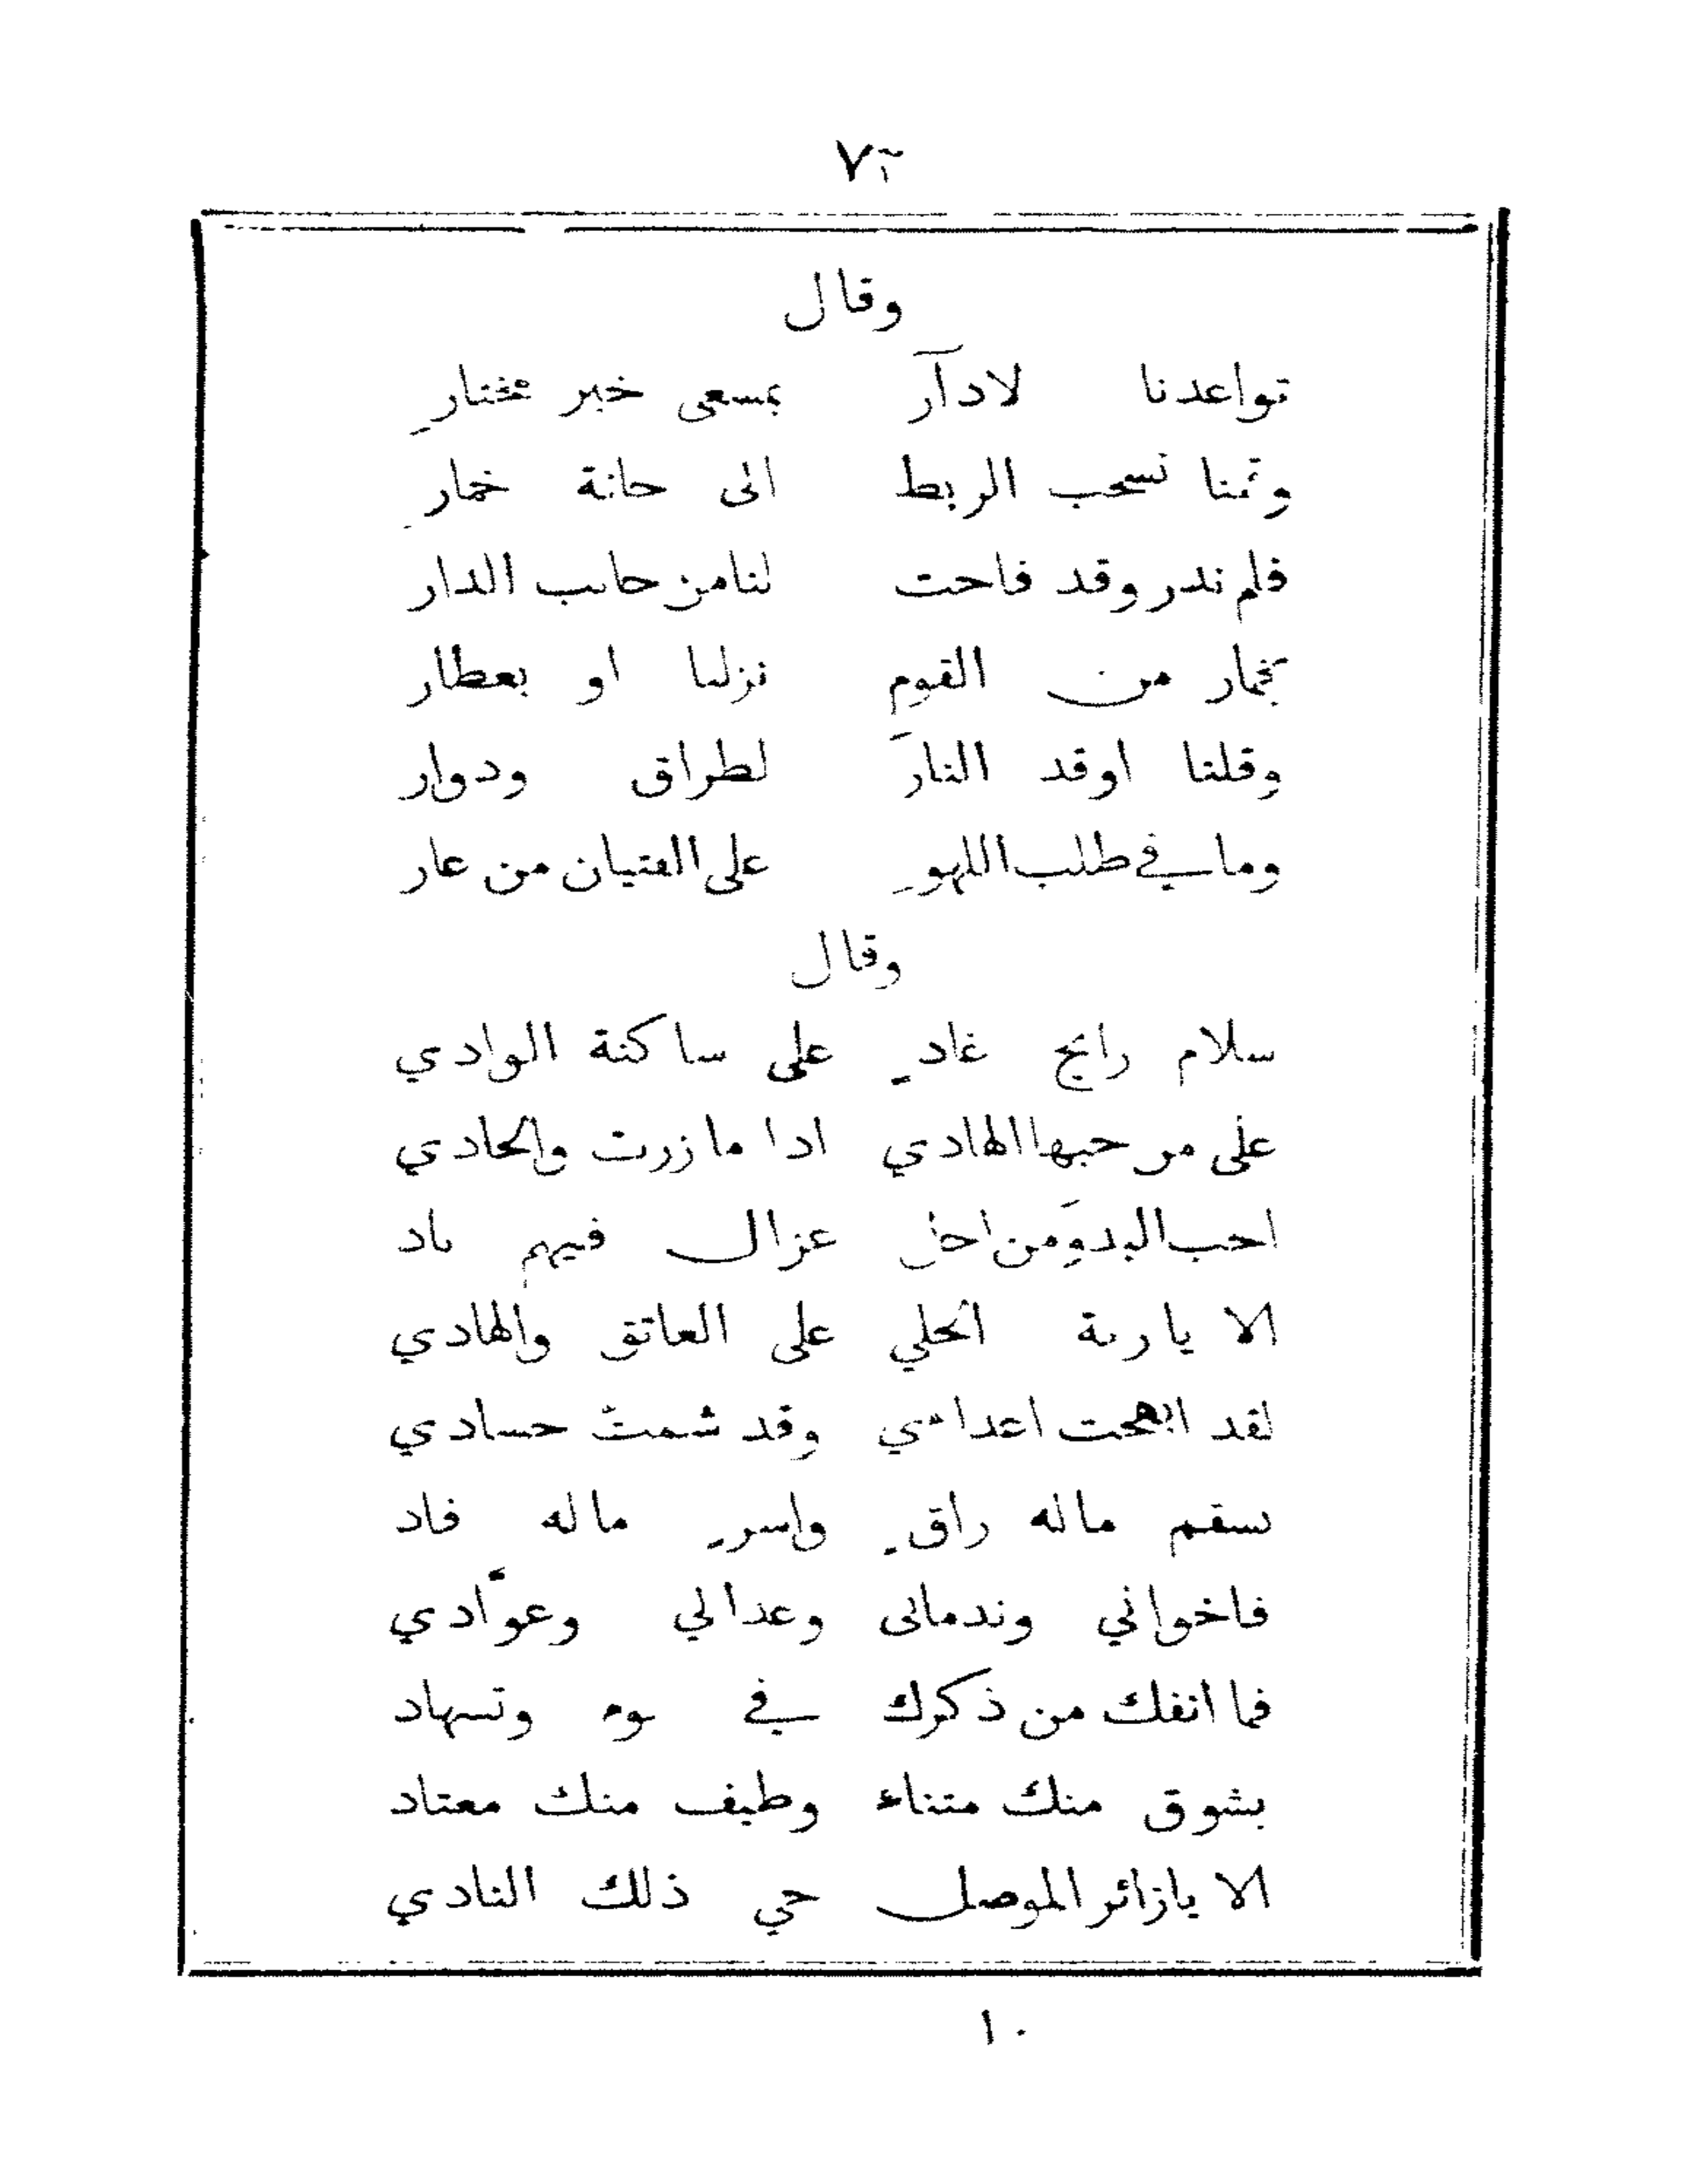 ٧٣
وقال
تواعدنا لادآر بمسعى خبر مختارِ
وقمنا نسحب الريط الى حانة خمارِ
فلم ندر وقد فاحت لنا من جانب الدار
بخمار من القومِ نزلنا او بعطار
وقلنا اوقد النارَ لطراق ودوار
وما في طلب اللهوِ على الفتيان من عار
وقال
سلام رايح غادٍ على ساكنة الوادي
على من حبها الهادي اذا ما زرت والحادي
احب البدوَ من اجل غزال فيهم باد
الا يا ربة الحلي على العاتق والهادي
لقد ابهجت اعدائي وقد شمتّ حسادي
بسقم ما له راقٍ واسرٍ ما له فاد
فاخواني وندماني وعذالي وعوّادي
فما انفك من ذكرك في نوم وتسهاد
بشوق منك متناء وطيف منك معتاد
الا يا زائر الموصل حي ذلك النادي
١٠